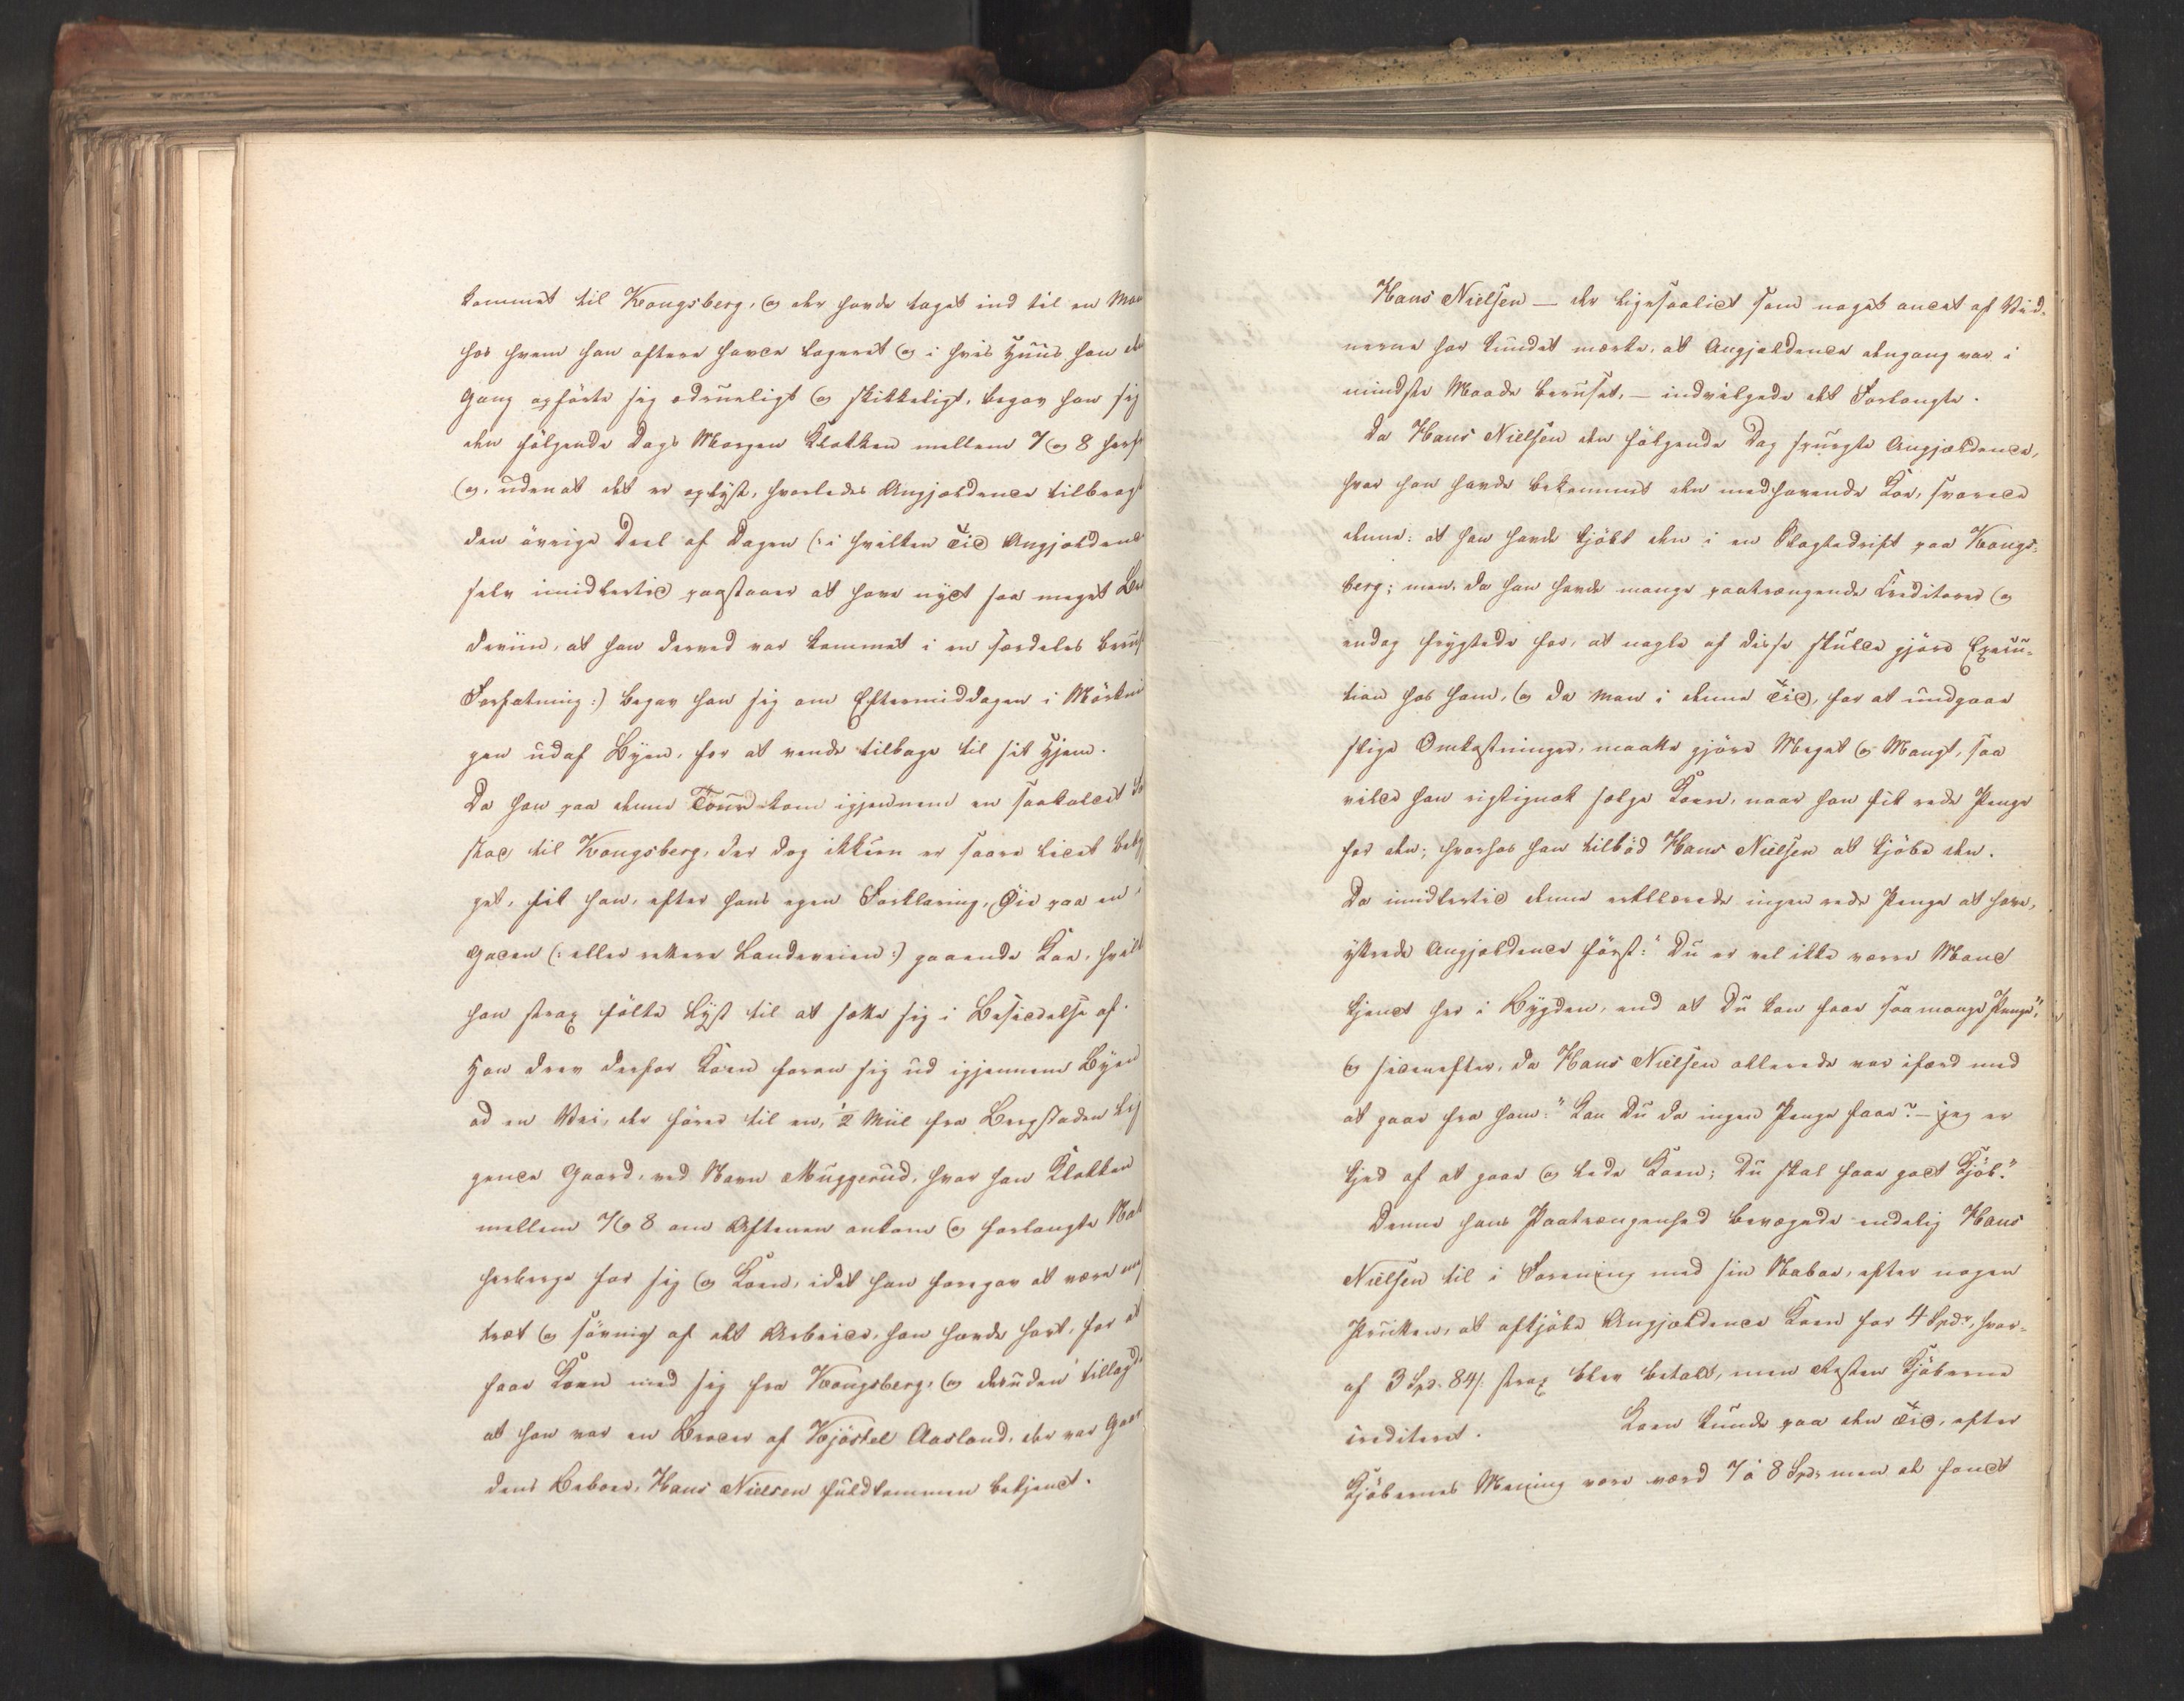 kommet til Kongsberg, og der havde taget ind til en Man
hos hvem han oftere havde logeret og i hvis Huus han den
Gang opførte sig ædrueligt og skikkeligt, begav han sig
den følgende Dags Morgen Klokken mellem 7 og 8 herfr
og, uden at det er oplyst, hvorledes Angjældende tilbragt
den øvrige Deel af Dagen (: i hvilken Tid Angjældende
selv imidlertid paastaaer at have nydt saa meget Bræn
deviin, at han derved var kommet i en særdeles beruset
Forfatning :) begav han sig om Eftermiddagen i Mørknin
gen ud af Byen, for at vende tilbage til sit Hjem.
Da han paa denne Tour kom igjennem en saakaldet
stad til Kongsberg, der dog ikkun er saare lidet beby
get, fik han, efter hans egen Forklaring, Øie paa en i
Gaden (: eller rettere Landeveien :) gaaende Koe, hvilk
han strax følte Lyst til at sætte sig i Besiddelse af.
Han drev derfor Koen foran sig ud igjennem Byen
ad en Vei, der fører til en, ½ Miil fra Bergstaden lig
gende Gaard, ved Navn Muggerud, hvor han Klokken
mellem 7 og 8 om Aftenen ankom og forlangte Nat
herberge for sig og Koen, idet han foregav at være meg
træt og søvnig af det Arbeide, han havde havt, for at
faae Koen med sig fra Kongsberg, og desuden tillagde
at han var en Broder af Kjøstel Aasland, der var Gaar
dens Beboer, Hans Nielsen fuldkommen bekjendt.
Hans Nielsen — der ligesaalidt som noget andet af Vid-
nerne har kundet mærke, at Angjældende dengang var i
mindste Maade beruset, — indvilgede det Forlangte.
Da Hans Nielsen den følgende Dag spurgte Angjældende,
hvor han havde bekommet den medhavende Koe, svarede
denne: at han havde kjøbt den i en Slagtedrift paa Kongs-
berg; men, da han havde mange paatrængende Creditorer og
endog frygtede for, at nogle af disse skulde gjøre Execu-
tion hos ham, og da man i denne Tid, for at undgaae
slige Omkostninger, maatte gjøre Meget og Mangt, saa
vilde han rigtignok sælge Koen, naar han fik rede Penge
for den; hvorhos han tilbød Hans Nielsen at kjøbe den.
Da imidlertid denne erklærede ingen rede Penge at have,
yttrede Angjældende først: "Du er vel ikke værre Mand
kjendt her i Bygden, end at Du kan faae saa mange Penge",
og sidenefter, da Hans Nielsen allerede var ifærd med
at gaae fra ham: "Kan Du da ingen Penge faae? — jeg er
kjed af at gaae og lede Koen; Du skal faae godt Kjøb."
Denne hans Paatrængenhed bevægede endelig Hans
Nielsen til i Forening med sin Naboe, efter nogen
Prutten, at afkjøbe Angjældende Koen for 4 Spdr, hvor-
af 3 Spd. 84 s. strax blev betalt, men Resten Kjøberne
crediteret. Koen kunde paa den Tid, efter
Kjøbernes Mening være værd 7 à 8 Spdr men de fandt